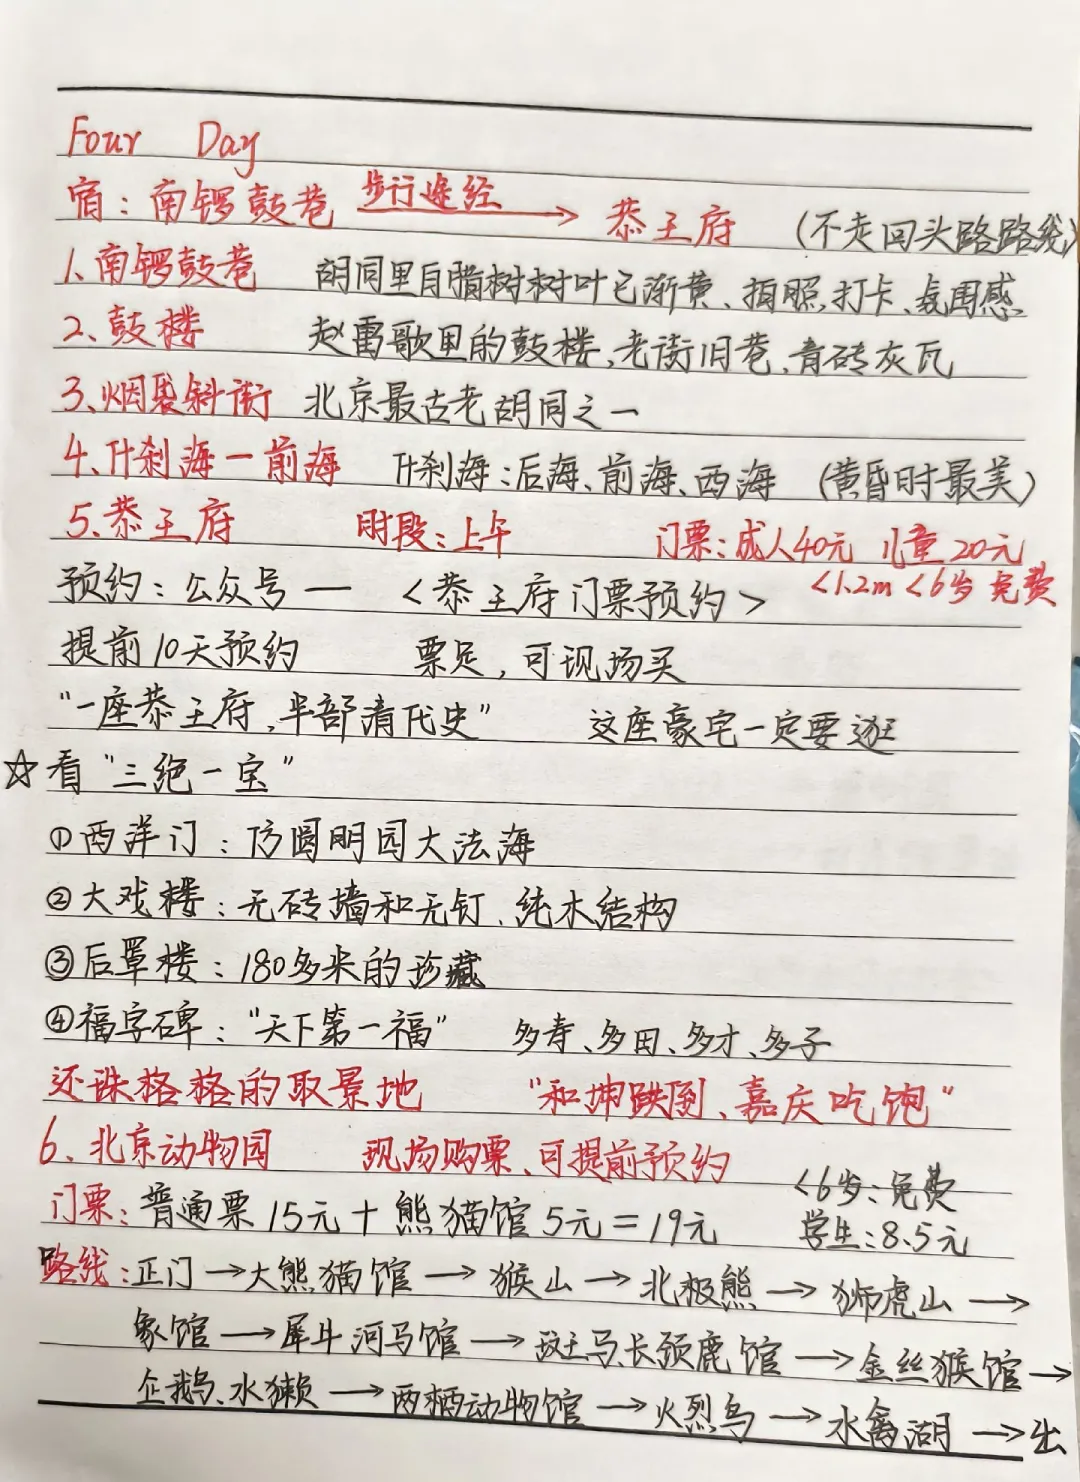 Four Day
宿：南锣鼓巷 步行途经→ 恭王府 （不走回头路路线）
1、南锣鼓巷 胡同里白腊树树叶已渐黄、拍照打卡、氛围感
2、鼓楼 赵雷歌里的鼓楼，老街旧巷，青砖灰瓦
3、烟袋斜街 北京最古老胡同之一
4、什刹海一前海 什刹海：后海、前海、西海 （黄昏时最美）
5、恭王府 时段：上午 门票：成人40元 儿童20元
<1.2m <6岁 免费
预约：公众号—— <恭王府门票预约>
提前10天预约 票足，可现场买
“一座恭王府，半部清代史” 这座豪宅一定要逛
☆看“三绝一宝”
①西洋门：仿圆明园大法海
②大戏楼：无砖墙和无钉、纯木结构
③后罩楼：180多米的珍藏
④福字碑：“天下第一福” 多寿、多田、多才、多子
还珠格格的取景地 “和坤跌倒、嘉庆吃饱”
6、北京动物园 现场购票、可提前预约
<6岁：免费
门票：普通票15元+熊猫馆5元=19元 学生：8.5元
路线：正门→大熊猫馆→猴山→北极熊→狮虎山→
象馆→犀牛河马馆→斑马、长颈鹿馆→金丝猴馆→
企鹅、水獭→两栖动物馆→火烈鸟→水禽湖→出